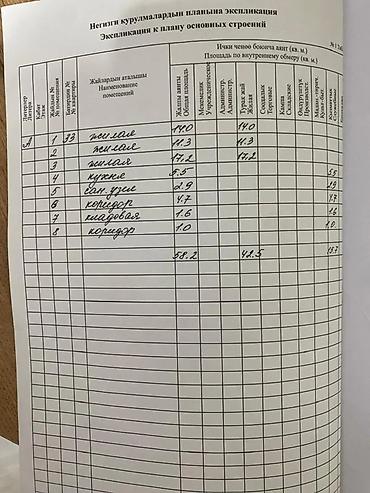 Негизги курулмалардын планына экспликация
Экспликация к плану основных строений
Ички ченөө боюнча аянт (кв. м.)
Площадь по внутреннему обмеру (кв. м.)
Литерлер
Литера
Кабат
Этаж
Жайдын №
№ помещения
Батирдин №
№ квартиры
Жайлардын аталышы
Наименование
помещений
Жалпы аянты
Общая площадь
Мекемелик
Учрежденческие
Администр.
Администр.
Турак жай
Жилая
Соодалык
Торговые
Кампа
Складские
А 1 33 жилая 14.0 14.0
2 жилая 11.3 11.3
3 жилая 17.2 17.2
4 кухня 5.5 5.5
5 сан. узел 2.9 2.9
6 коридор 4.7 4.7
7 кладовая 1.6 1.6
8 коридор 1.0 1.0
58.2 42.5 15.7